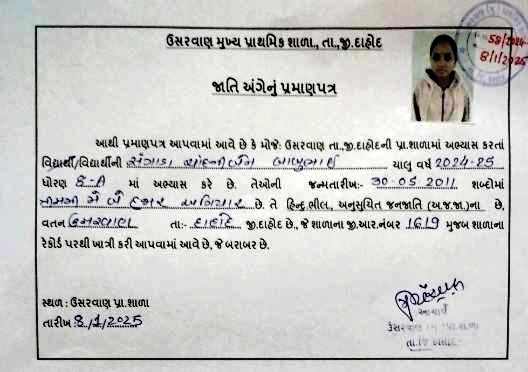 ઉસરવાણ મુખ્ય પ્રાથમિક શાળા., તા.,જી.દાહોદ
58/2024-
8/1/2025
જાતિ અંગેનું પ્રમાણપત્ર
આથી પ્રમાણપત્ર આપવામાં આવે છે કે મોજે: ઉસરવાણ તા.,જી.દાહોદની પ્રા.શાળામાં અભ્યાસ કરતાં
વિદ્યાર્થી/વિદ્યાર્થીની સંગાડા ચાંદનીબેન બાબુભાઈ ચાલુ વર્ષ 2024-25
ધોરણ 8-A માં અભ્યાસ કરે છે. તેઓની જન્મતારીખ:- 30-05 2011 શબ્દોમાં
ત્રીસમી મે બે હજાર અગિયાર છે. તે હિન્દુ ભીલ, અનુસુચિત જનજાતિ (અ.જ.જા.)ના છે,
વતન ઉસરવાણ તા:- દાહોદ જી.દાહોદ છે., જે શાળાના જી.આર.નંબર 1619 મુજબ શાળાના
રેકોર્ડ પરથી ખાત્રી કરી આપવામાં આવે છે, જે બરાબર છે.
સ્થળ : ઉસરવાણ પ્રા.શાળા
તારીખ :8/1/2025
આચાર્ય